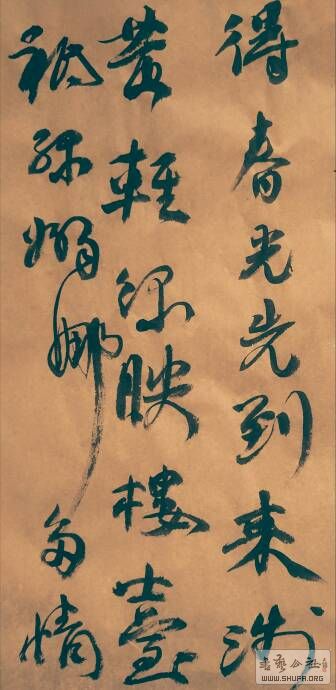 得春光先到來淺
黄輕緑映樓臺
祇緣嫋娜多情
書藝公社
WWW.SHUFA.ORG